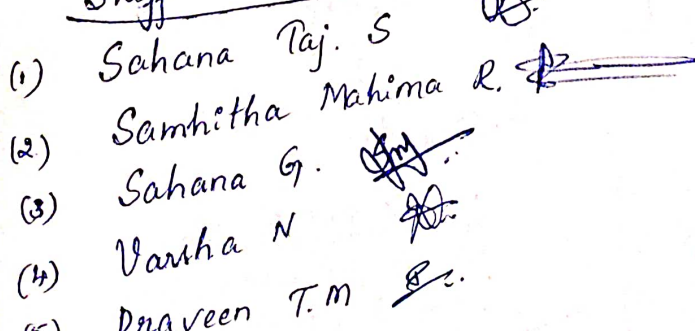 (1) Sahana Taj. S
(2) Samhitha Mahima R.
(3) Sahana G.
(4) Varsha N
(5) Praveen T.M